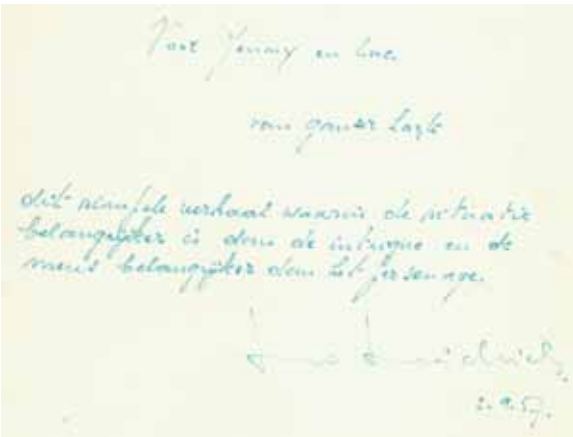 Voor Jenny en Luc.
van ganser harte
dit simpele verhaal waarin de situatie
belangrijker is dan de intrigue en de
mens belangrijker dan het personage.
2.9.57.